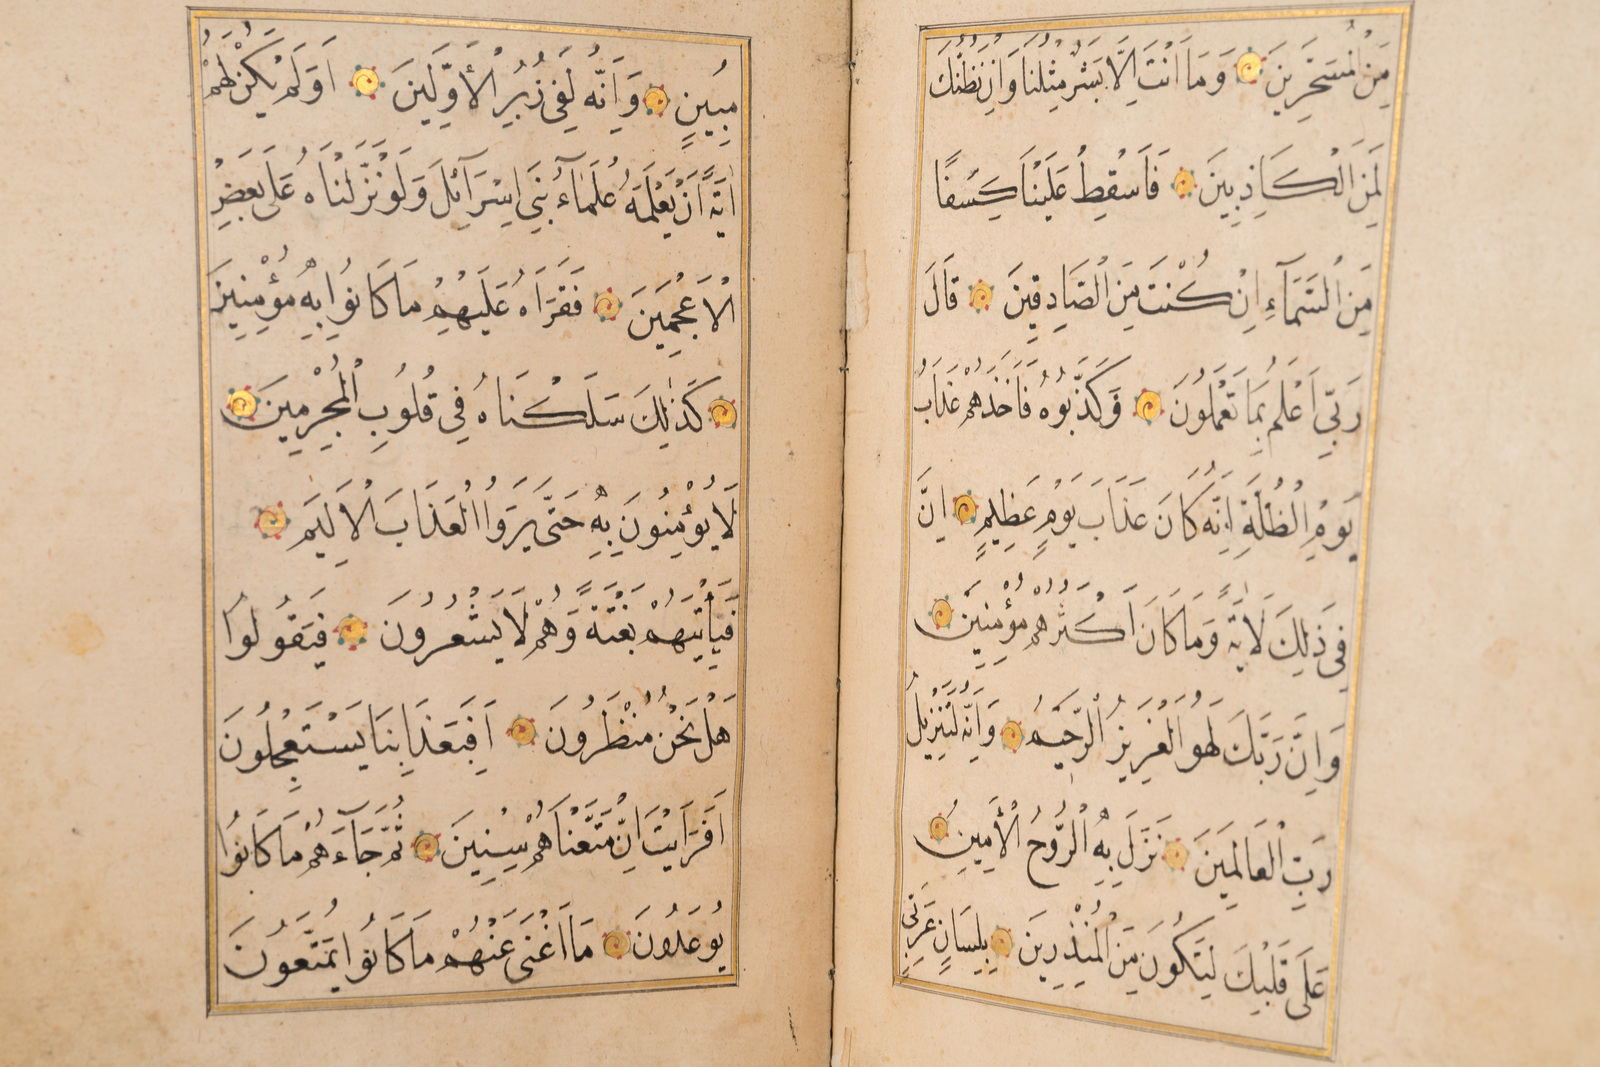 مِنَ الْمُسَحَّرِينَ وَمَا اَنْتَ اِلَّا بَشَرٌ مِثْلُنَا وَاِنْ نَظُنُّكَ
لَمِنَ الْكَاذِبِينَ فَاَسْقِطْ عَلَيْنَا كِسَفًا
مِنَ السَّمَآءِ اِنْ كُنْتَ مِنَ الصَّادِقِينَ قَالَ
رَبِّي اَعْلَمُ بِمَا تَعْمَلُونَ وَكَذَّبُوهُ فَاَخَذَهُمْ عَذَابُ
يَوْمِ الظُّلَّةِ اِنَّهُ كَانَ عَذَابَ يَوْمٍ عَظِيمٍ اِنَّ
فِي ذٰلِكَ لَاٰيَةً وَمَا كَانَ اَكْثَرُهُمْ مُؤْمِنِينَ
وَاِنَّ رَبَّكَ لَهُوَ الْعَزِيزُ الرَّحِيمُ وَاِنَّهُ لَتَنْزِيلُ
رَبِّ الْعَالَمِينَ نَزَلَ بِهِ الرُّوحُ الْأَمِينُ
عَلَى قَلْبِكَ لِتَكُونَ مِنَ الْمُنْذِرِينَ بِلِسَانٍ عَرَبِيٍّ
مُبِينٍ وَاَنَّهُ لَفِي زُبُرِ الْأَوَّلِينَ اَوَلَمْ يَكُنْ لَهُمْ
اٰيَةً اَنْ يَعْلَمَهُ عُلَمَآءُ بَنِي اِسْرَآئِلَ وَلَوْ نَزَّلْنَاهُ عَلَى بَعْضِ
الْاَعْجَمِينَ فَقَرَاَهُ عَلَيْهِمْ مَا كَانُوا بِهِ مُؤْمِنِينَ
كَذٰلِكَ سَلَكْنَاهُ فِي قُلُوبِ الْمُجْرِمِينَ
لَا يُؤْمِنُونَ بِهِ حَتَّى يَرَوُا الْعَذَابَ الْاَلِيمَ
فَيَأْتِيَهُمْ بَغْتَةً وَهُمْ لَا يَشْعُرُونَ فَيَقُولُوا
هَلْ نَحْنُ مُنْظَرُونَ اَفَبِعَذَابِنَا يَسْتَعْجِلُونَ
اَفَرَاَيْتَ اِنْ مَتَّعْنَاهُمْ سِنِينَ ثُمَّ جَآءَهُمْ مَا كَانُوا
يُوعَدُونَ مَا اَغْنَى عَنْهُمْ مَا كَانُوا يُمَتَّعُونَ